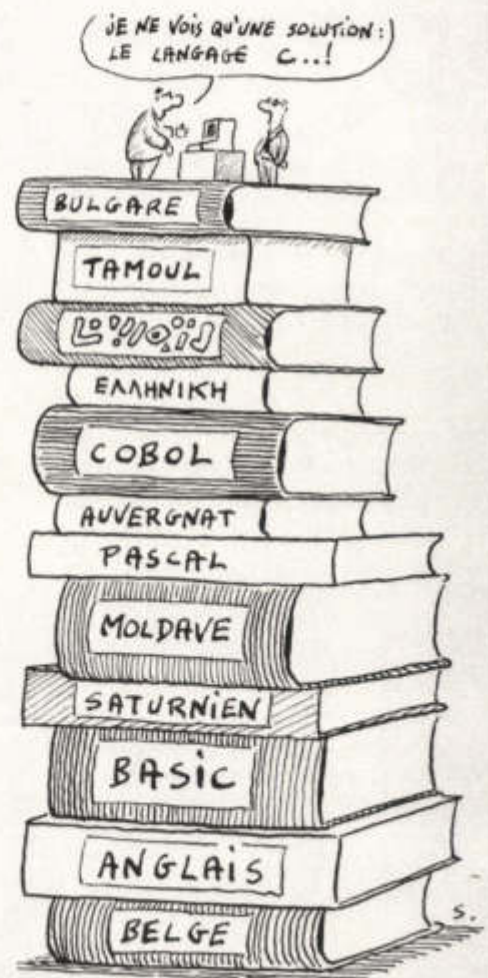 JE NE VOIS QU'UNE SOLUTION:
LE LANGAGE C..!
BULGARE
TAMOUL
ΕΛΛΗΝΙΚΗ
COBOL
AUVERGNAT
PASCAL
MOLDAVE
SATURNIEN
BASIC
ANGLAIS
BELGE
S.